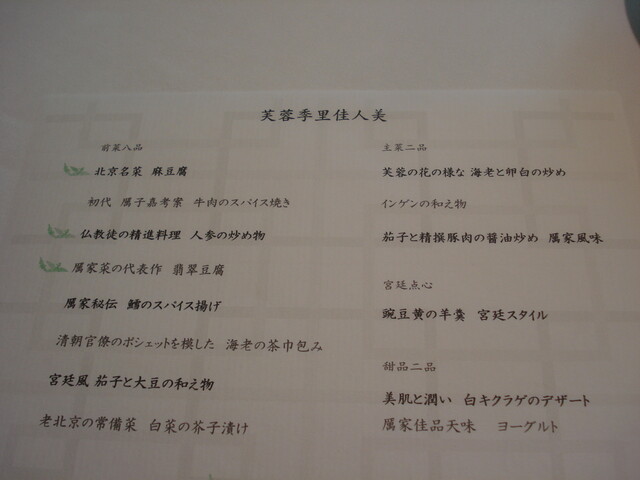 芙蓉季里佳人美
前菜八品
北京名菜 麻豆腐
初代 厲子嘉考案 牛肉のスパイス焼き
仏教徒の精進料理 人参の炒め物
厲家菜の代表作 翡翠豆腐
厲家秘伝 鱈のスパイス揚げ
清朝官僚のポシェットを模した 海老の茶巾包み
宮廷風 茄子と大豆の和え物
老北京の常備菜 白菜の芥子漬け
主菜二品
芙蓉の花の様な 海老と卵白の炒め
インゲンの和え物
茄子と精撰豚肉の醤油炒め 厲家風味
宮廷点心
豌豆黄の羊羹 宮廷スタイル
甜品二品
美肌と潤い 白キクラゲのデザート
厲家佳品天味 ヨーグルト